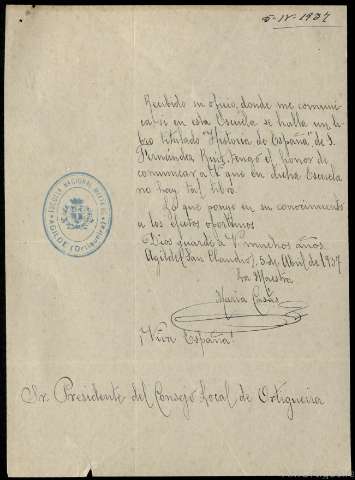 5-IV-1937
Recibido su oficio, donde me comuni-
ca si en esta Escuela se halla un li-
bro titulado "Historia de España", de S.
Fernández Ruiz, tengo el honor de
comunicar a V. que en dicha Escuela
no hay tal libro.
Lo que pongo en su conocimiento
a los efectos oportunos.
Dios guarde a V. muchos años.
Agilde (San Claudio), 5 de Abril de 1937
La Maestra
María Casás
¡Viva España!
Sr. Presidente del Consejo Local de Ortigueira
ESCUELA NACIONAL MIXTA DE
AGILDE (Ortigueira)